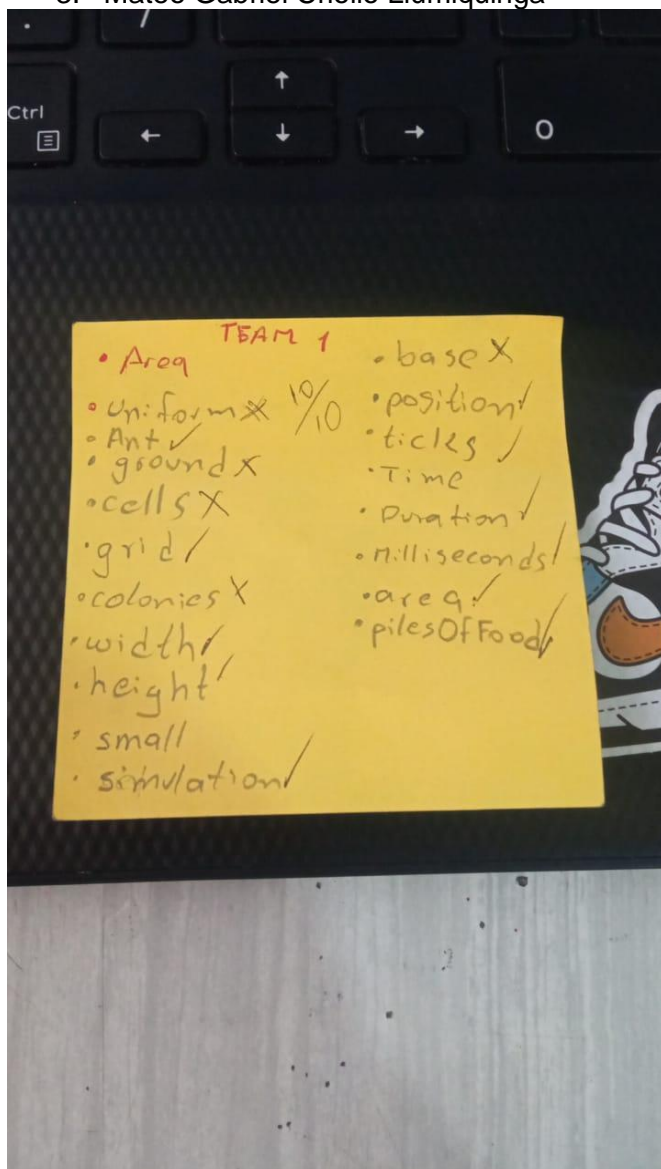 Mateo Gabriel
Ctrl
↑
← ↓ →
0
TEAM 1
• Area
• Uniform X 10/10
• Ant ✓
• ground X
• cells X
• grid ✓
• colonies X
• width ✓
• height ✓
• small
• simulation ✓
• base X
• position ✓
• ticks ✓
• Time
• Duration ✓
• Milliseconds ✓
• area ✓
• pilesOfFood ✓